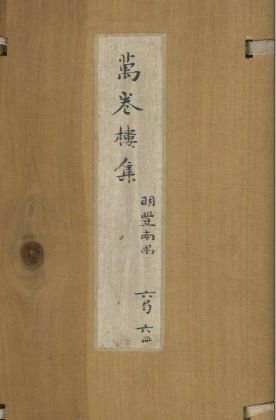 萬卷樓集
明豐南禺
六𠔥 六冊